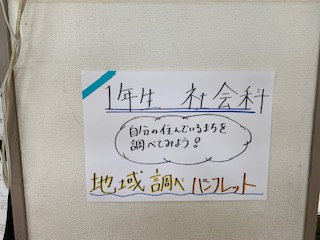 1年生 社会科
自分の住んでいるまちを
調べてみよう!
地域調べパンフレット